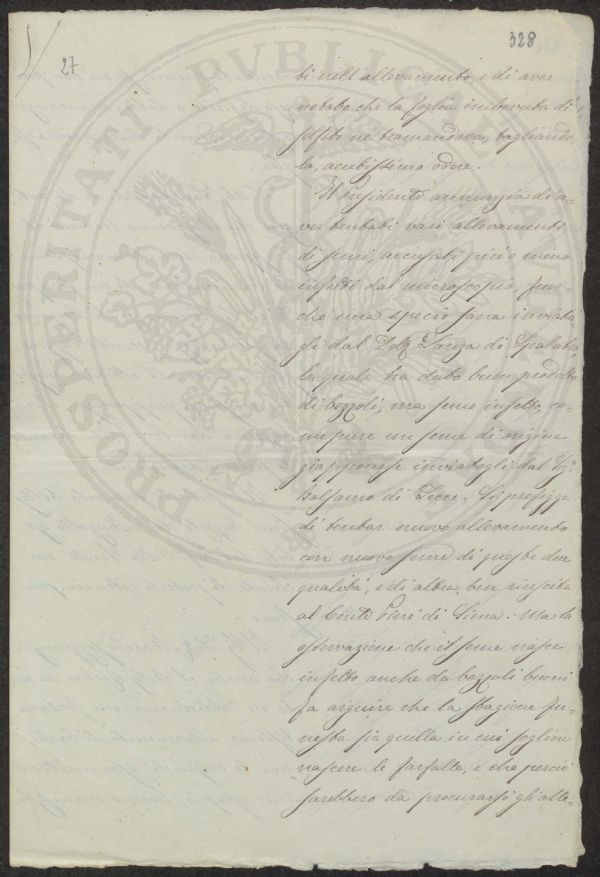 27
328
bi nell'allevamento, e di aver
notato che la foglia imbevuta di
solfito ne tramandava, tagliando
la, acutissimo odore.
Il Presidente annunzia di a-
ver tentati vari allevamenti
di semi, accusati più o meno
infetti dal microscopio, fuor-
ché una specie sana inviata
gli dal Dott. Lanza di Spalatro,
la quale ha dato buon prodotto
di bozzoli, ma seme infetto, co-
me pure un seme di origine
giapponese inviatogli dal Sig.
Balsamo di Lecce. Si prefigge
di tentar nuovo allevamento
con nuovo seme di queste due
qualità, e di altra ben riuscita
al Conte Pieri di Siena. Ma la
osservazione che il seme nasce
infetto anche da bozzoli buoni
fa arguire che la stagione fu-
nesta sia quella in cui soglion
nascere le farfalle, e che perciò
sarebbero da procurarsi gli alle-
PROSPERITATI PVBLICAE AVGENDAE